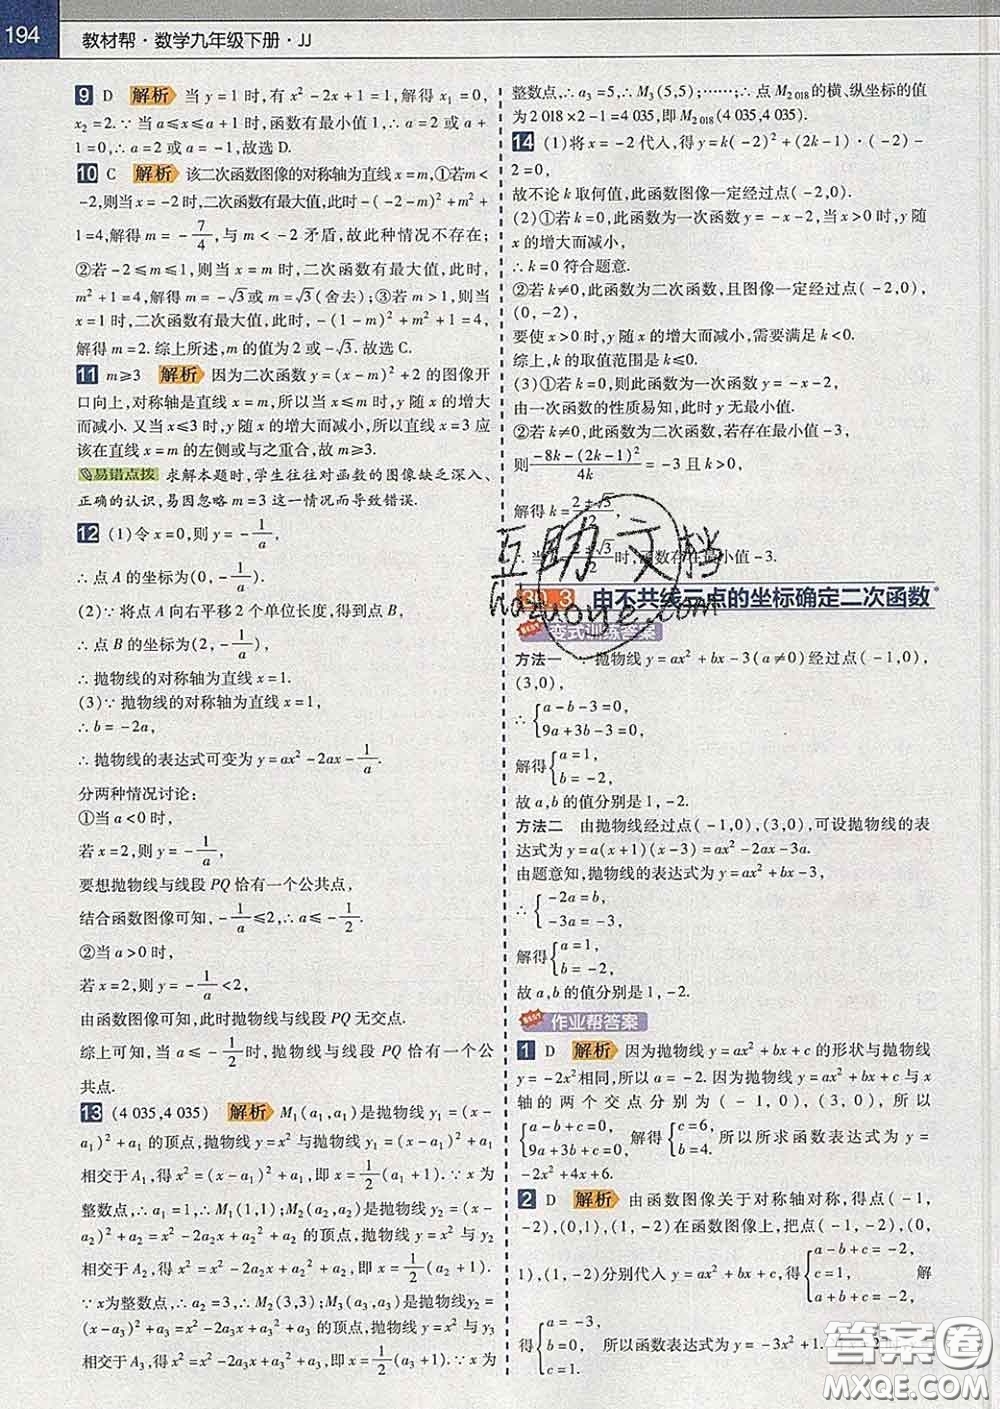 194
教材帮·数学九年级下册·JJ
9 D 解析 当y=1时,有x²-2x+1=1,解得x₁=0,
x₂=2.∵当a≤x≤a+1时,函数有最小值1,∴a=2或a+
1=0,∴a=2或a=-1,故选D.
10 C 解析 该二次函数图像的对称轴为直线x=m,①若m<
-2,则当x=-2时,二次函数有最大值,此时-(-2-m)²+m²+
1=4,解得m=-7/4,与m<-2矛盾,故此种情况不存在;
②若-2≤m≤1,则当x=m时,二次函数有最大值,此时,
m²+1=4,解得m=-√3或m=√3(舍去);③若m>1,则当
x=1时,二次函数有最大值,此时,-(1-m)²+m²+1=4,
解得m=2.综上所述,m的值为2或-√3.故选C.
11 m≥3 解析 因为二次函数y=(x-m)²+2的图像开
口向上,对称轴是直线x=m,所以当x≤m时,y随x的增大
而减小.又当x≤3时,y随x的增大而减小,所以直线x=3应
该在直线x=m的左侧或与之重合,故m≥3.
易错点拨 求解本题时,学生往往对函数的图像缺乏深入、
正确的认识,易因忽略m=3这一情况而导致错误.
12 (1)令x=0,则y=-1/a,
∴点A的坐标为(0,-1/a).
(2)∵将点A向右平移2个单位长度,得到点B,
∴点B的坐标为(2,-1/a),
∴抛物线的对称轴为直线x=1.
(3)∵抛物线的对称轴为直线x=1,
∴b=-2a,
∴抛物线的表达式可变为y=ax²-2ax-1/a.
分两种情况讨论:
①当a<0时,
若x=2,则y=-1/a,
要想抛物线与线段PQ恰有一个公共点,
结合函数图像可知,-1/a≤2,∴a≤-1/2.
②当a>0时,
若x=2,则y=-1/a<2,
由函数图像可知,此时抛物线与线段PQ无交点.
综上可知,当a≤-1/2时,抛物线与线段PQ恰有一个公
共点.
13 (4 035,4 035) 解析 M₁(a₁,a₁)是抛物线y₁=(x-
a₁)²+a₁的顶点,抛物线y=x²与抛物线y₁=(x-a₁)²+a₁
相交于A₁,得x²=(x-a₁)²+a₁,即x=1/2(a₁+1).∵x为
整数点,∴a₁=1,∴M₁(1,1);M₂(a₂,a₂)是抛物线y₂=
(x-a₂)²+a₂=x²-2a₂x+a₂²+a₂的顶点,抛物线y=x²与y₂
相交于A₂,得x²=x²-2a₂x+a₂²+a₂,即x=1/2(a₂+1).
∵x为整数点,∴a₂=3,∴M₂(3,3);M₃(a₃,a₃)是抛物线y₃=
(x-a₃)²+a₃=x²-2a₃x+a₃²+a₃的顶点,抛物线y=x²与y₃
相交于A₃,得x²=x²-2a₃x+a₃²+a₃,即x=1/2(a₃+1).∵x为
整数点,∴a₃=5,∴M₃(5,5);……;∴点M₂ ₀₁₈的横、纵坐标的值
为2 018×2-1=4 035,即M₂ ₀₁₈(4 035,4 035).
14 (1)将x=-2代入,得y=k(-2)²+(2k-1)·(-2)-
2=0,
故不论k取何值,此函数图像一定经过点(-2,0).
(2)①若k=0,此函数为一次函数y=-x-2,当x>0时,y随
x的增大而减小,
∴k=0符合题意.
②若k≠0,此函数为二次函数,且图像一定经过点(-2,0),
(0,-2),
要使x>0时,y随x的增大而减小,需要满足k<0.
综上,k的取值范围是k≤0.
(3)①若k=0,则此函数为一次函数y=-x-2,
由一次函数的性质易知,此时y无最小值.
②若k≠0,此函数为二次函数,若函数存在最小值-3,
则(-8k-(2k-1)²)/4k=-3且k>0,
解得k=(2±√3)/2,
∴当k=(2±√3)/2时,函数存在最小值-3.
30.3 由不共线三点的坐标确定二次函数*
变式训练答案
方法一 ∵抛物线y=ax²+bx-3(a≠0)经过点(-1,0),
(3,0),
∴{a-b-3=0,
9a+3b-3=0,
解得{a=1,
b=-2,
故a,b的值分别是1,-2.
方法二 由抛物线经过点(-1,0),(3,0),可设抛物线的表
达式为y=a(x+1)(x-3)=ax²-2ax-3a.
由题意知,抛物线的表达式为y=ax²+bx-3,
∴{-2a=b,
-3a=-3,
解得{a=1,
b=-2,
故a,b的值分别是1,-2.
作业帮答案
1 D 解析 因为抛物线y=ax²+bx+c的形状与抛物线
y=-2x²相同,所以a=-2.因为抛物线y=ax²+bx+c与x
轴的两个交点分别为(-1,0),(3,0),所以
{a-b+c=0, 9a+3b+c=0, 解得{c=6, b=4. 所以所求函数表达式为y=
-2x²+4x+6.
2 D 解析 由函数图像关于对称轴对称,得点(-1,
-2),(0,1),(1,-2)在函数图像上,把点(-1,-2),(0,
1),(1,-2)分别代入y=ax²+bx+c,得{a-b+c=-2, c=1, a+b+c=-2, 解
得{a=-3, b=0, c=1. 所以函数表达式为y=-3x²+1.
互助文档
hdzuoye.com
答案圈
MXQE.COM